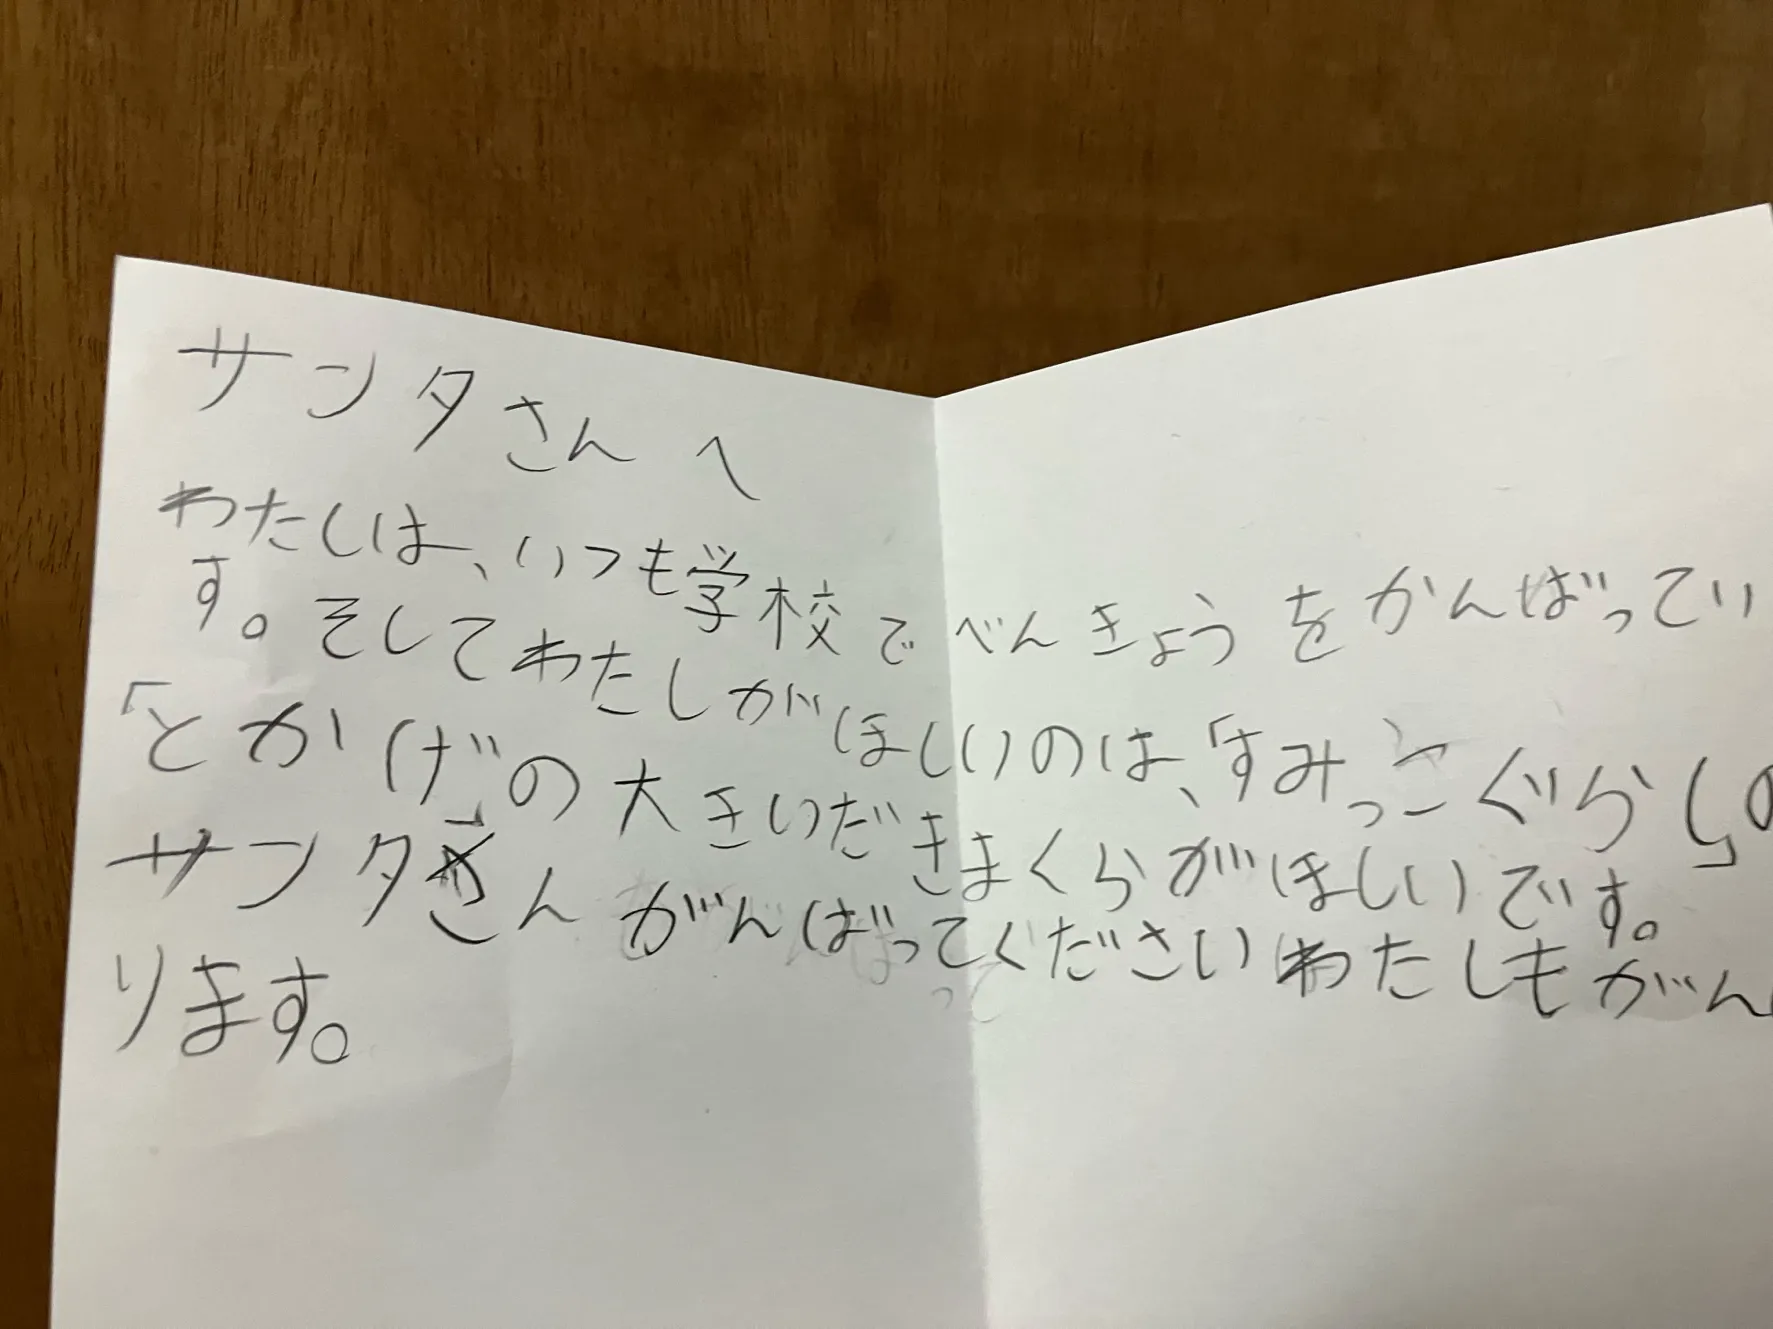 サンタさんへ
わたしは、いつも学校でべんきょうをがんばってい
す。そしてわたしがほしいのは、「すみっこぐらしの
「とかげの大きいだきまくらがほしいです。
サンタさんがんばってくださいわたしもがん
ります。